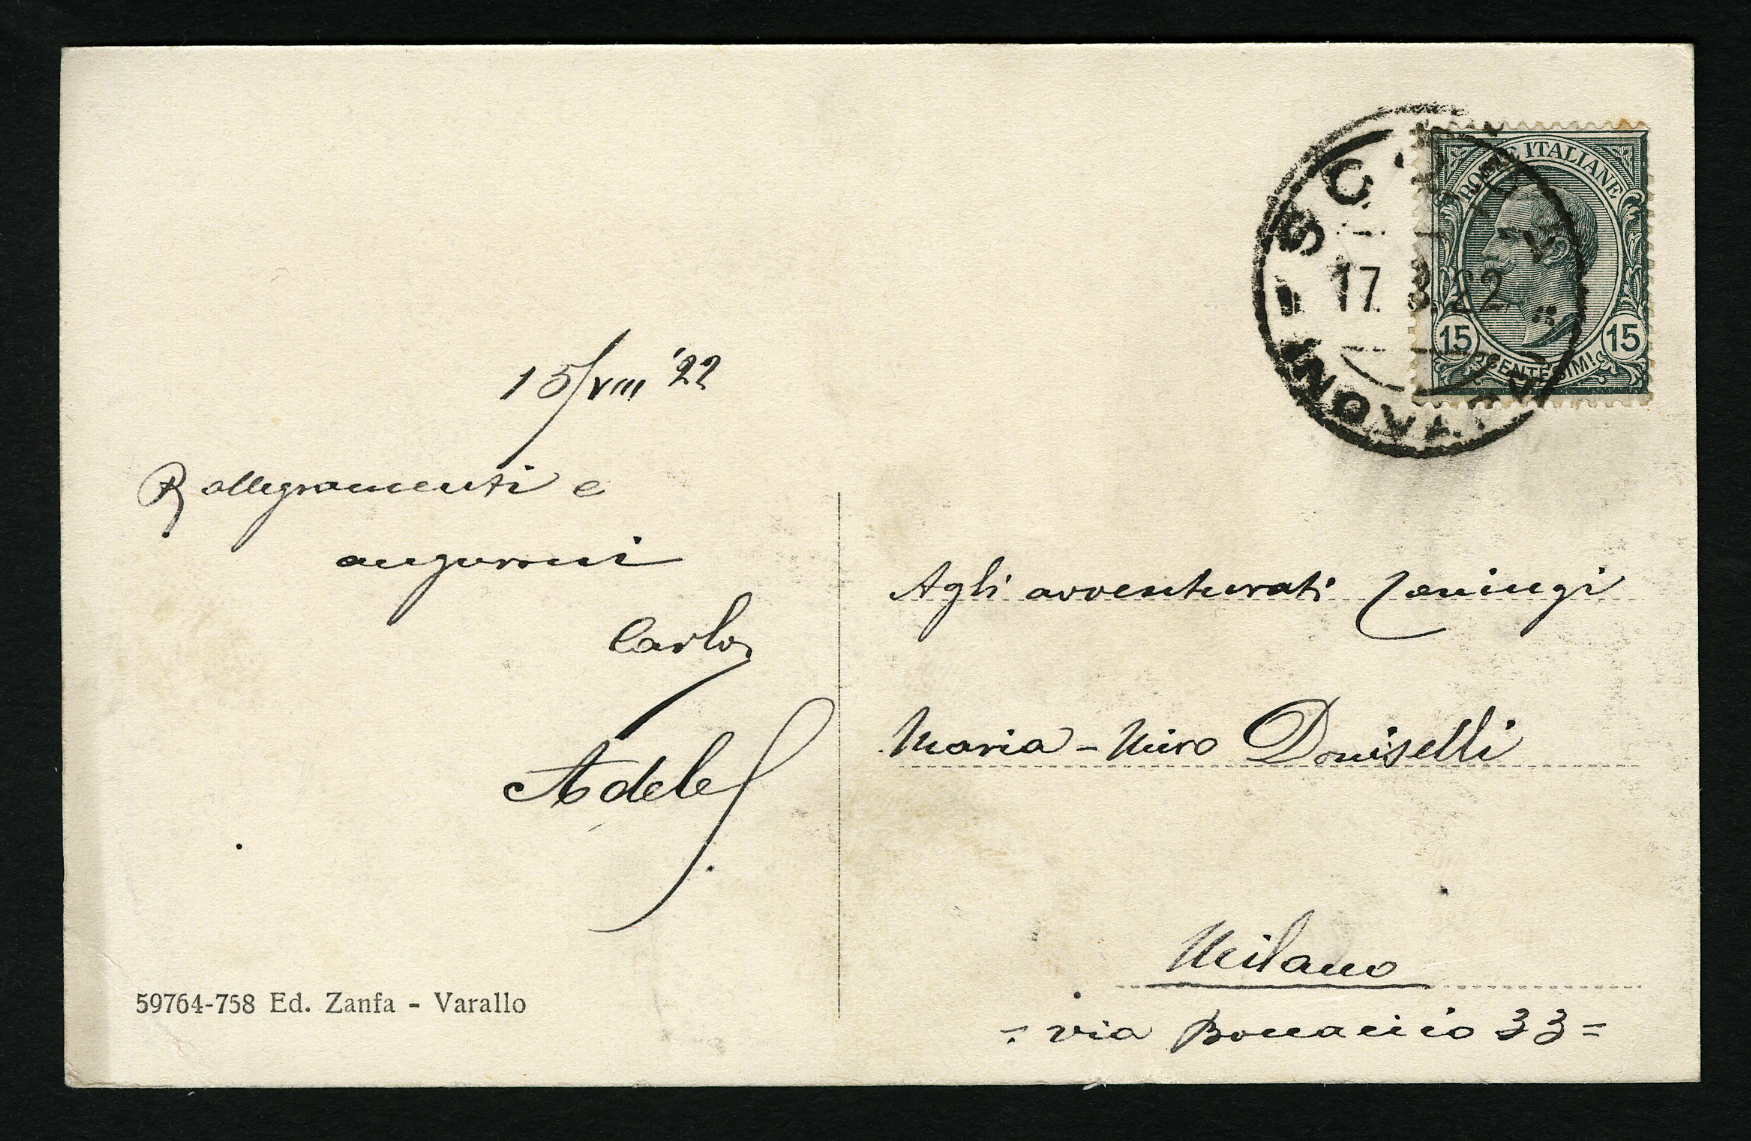 15/VIII '22
Rallegramenti e
auguroni
Carlo
Adele
59764-758 Ed. Zanfa - Varallo
POSTE ITALIANE
17. 8. 22
15 CENTESIMI 15
Agli avventurati coniugi
Maria - Miro Doniselli
Milano
= via Boccaccio 33 =